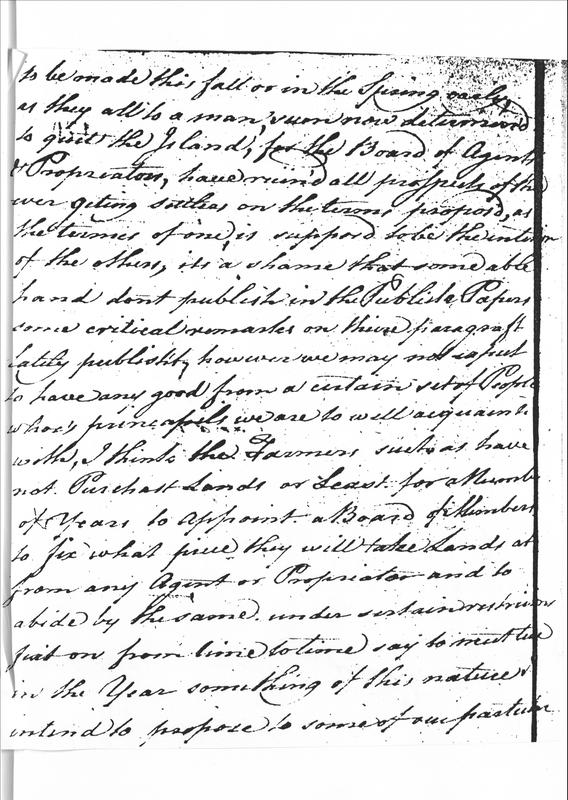 to be made this fall or in the Spring early,
as they all to a man seem now determined
to quit the Island, for the Board of Agents
& Proprieators, have ruin'd all prospects of the
ever geting settlers on the terms propos'd, as
the termes of one, is suppos'd to be the intention
of the others, its a shame that some able
hand dont publish in the Publick Papers
some critical remarks on there paragraft
lately publisht, however we may not expect
to have any good from a certain set of People
whoe's princapels we are to well acquaint
with, I think the Farmers such as have
not Purchast Lands or Least for a Number
of Years to Appoint a Board of Members
to fix what price they will take Lands at
from any Agent or Proprieator and to
abide by the same under sertain restrictions
fixt on from time to time say to meet twice
in the Year something of this nature I
intend to propose to some of our particular